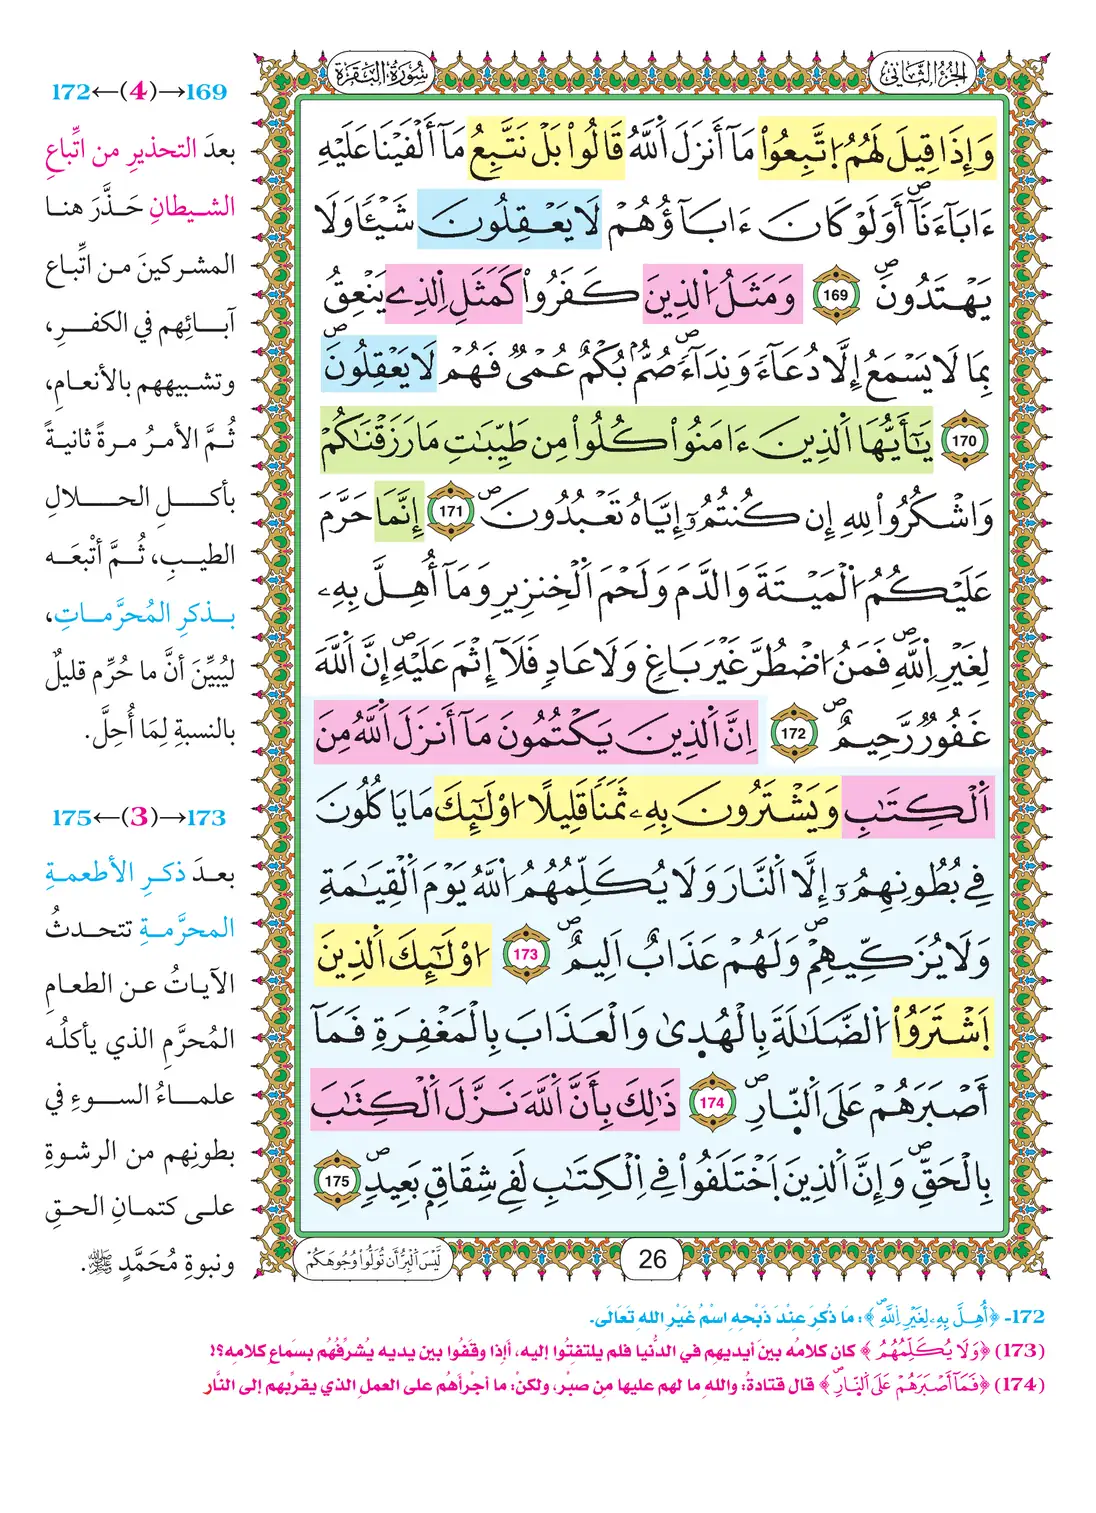 الجزء الثاني
سورة البقرة
وَإِذَا قِيلَ لَهُمُ اُ۪تَّبِعُواْ مَآ أَنزَلَ اَ۬للَّهُ قَالُواْ بَلْ نَتَّبِعُ مَآ أَلْفَيْنَا عَلَيْهِ
ءَابَآءَنَآۖ أَوَلَوْ كَانَ ءَابَآؤُهُمْ لَا يَعْقِلُونَ شَيْـٔٗا وَلَا
يَهْتَدُونَۖ 169 وَمَثَلُ اُ۬لذِينَ كَفَرُواْ كَمَثَلِ اِ۬لذِے يَنْعِقُ
بِمَا لَا يَسْمَعُ إِلَّا دُعَآءٗ وَنِدَآءٗۖ صُمُّۢ بُكْمٌ عُمْيٞ فَهُمْ لَا يَعْقِلُونَۖ
170 يَٰٓأَيُّهَا اَ۬لذِينَ ءَامَنُواْ كُلُواْ مِن طَيِّبَٰتِ مَا رَزَقْنَٰكُمْ
وَاشْكُرُواْ لِلهِ إِن كُنتُمُۥٓ إِيَّاهُ تَعْبُدُونَۖ 171 إِنَّمَا حَرَّمَ
عَلَيْكُمُ اُ۬لْمَيْتَةَ وَالدَّمَ وَلَحْمَ اَ۬لْخِنزِيرِ وَمَآ أُهِلَّ بِهِۦ
لِغَيْرِ اِ۬للَّهِۖ فَمَنُ اُ۟ضْطُرَّ غَيْرَ بَاغٖ وَلَا عَادٖ فَلَآ إِثْمَ عَلَيْهِۖ إِنَّ اَ۬للَّهَ
غَفُورٞ رَّحِيمٌۖ 172 اِنَّ اَ۬لذِينَ يَكْتُمُونَ مَآ أَنزَلَ اَ۬للَّهُ مِنَ
اَ۬لْكِتَٰبِ وَيَشْتَرُونَ بِهِۦ ثَمَنٗا قَلِيلًا اُوْلَٰٓئِكَ مَا يَاكُلُونَ
فِے بُطُونِهِمُۥٓ إِلَّا اَ۬لنَّارَ وَلَا يُكَلِّمُهُمُ اُ۬للَّهُ يَوْمَ اَ۬لْقِيَٰمَةِ
وَلَا يُزَكِّيهِمْۖ وَلَهُمْ عَذَابٌ اَلِيمٌۖ 173 اُوْلَٰٓئِكَ اَ۬لذِينَ
اَ۪شْتَرَوُاْ اُ۬لضَّلَٰلَةَ بِالْهُد۪يٰ وَالْعَذَابَ بِالْمَغْفِرَةِ فَمَآ
أَصْبَرَهُمْ عَلَي اَ۬لنّ۪ارِۖ 174 ذَٰلِكَ بِأَنَّ اَ۬للَّهَ نَزَّلَ اَ۬لْكِتَٰبَ
بِالْحَقِّۖ وَإِنَّ اَ۬لذِينَ اَ۪خْتَلَفُواْ فِے اِ۬لْكِتَٰبِ لَفِے شِقَاقِۢ بَعِيدٖۖ 175
26
لَّيْسَ اَ۬لْبِرُّ أَن تُوَلُّواْ وُجُوهَكُمْ
169→(4)←172
بعدَ التحذيرِ من اتِّباعِ
الشيطانِ حَذَّرَ هنا
المشركينَ من اتِّباعِ
آبائِهم في الكفرِ،
وتشبيههم بالأنعامِ،
ثُمَّ الأمرُ مرةً ثانيةً
بأكلِ الحلالِ
الطيبِ، ثُمَّ أتْبعَه
بذكرِ المُحرَّماتِ،
ليُبيِّنَ أنَّ ما حُرِّم قليلٌ
بالنسبةِ لِمَا أُحِلَّ.
173→(3)←175
بعدَ ذكرِ الأطعمةِ
المحرَّمةِ تتحدثُ
الآياتُ عن الطعامِ
المُحرَّمِ الذي يأكلُه
علماءُ السوءِ في
بطونِهم من الرشوةِ
على كتمانِ الحقِ
ونبوةِ مُحَمَّدٍ ﷺ.
172- ﴿أُهِلَّ بِهِۦ لِغَيْرِ اِ۬للَّهِۖ﴾: مَا ذُكِرَ عِنْدَ ذَبْحِهِ اسْمُ غَيْرِ اللهِ تَعَالَى.
(173) ﴿وَلَا يُكَلِّمُهُمُ﴾ كان كلامُه بينَ أيديهم في الدُّنيا فلم يلتفِتُوا إليه، أإذا وقفُوا بين يديه يُشرِّفُهُم بسَماعِ كلامِه؟!
(174) ﴿فَمَآ أَصْبَرَهُمْ عَلَي اَ۬لنّ۪ارِۖ﴾ قال قتادةُ: واللهِ ما لهم عليها مِن صبْرٍ، ولكنْ: ما أجْرأهُم على العملِ الذي يقرِّبهم إلى النَّار